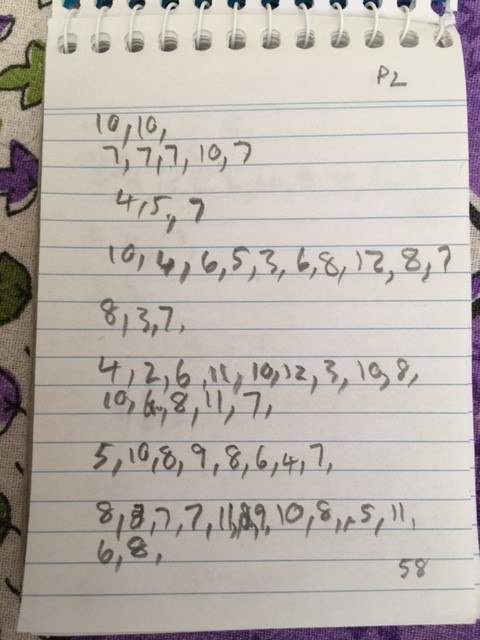 P2
10,10,
7,7,7,10,7
4,5,7
10,4,6,5,3,6,8,12,8,7
8,3,7,
4,2,6,11,10,12,3,10,8,
10,6,8,11,7,
5,10,8,9,8,6,4,7,
8,8,7,7,11,9,10,8,5,11,
6,8,
58